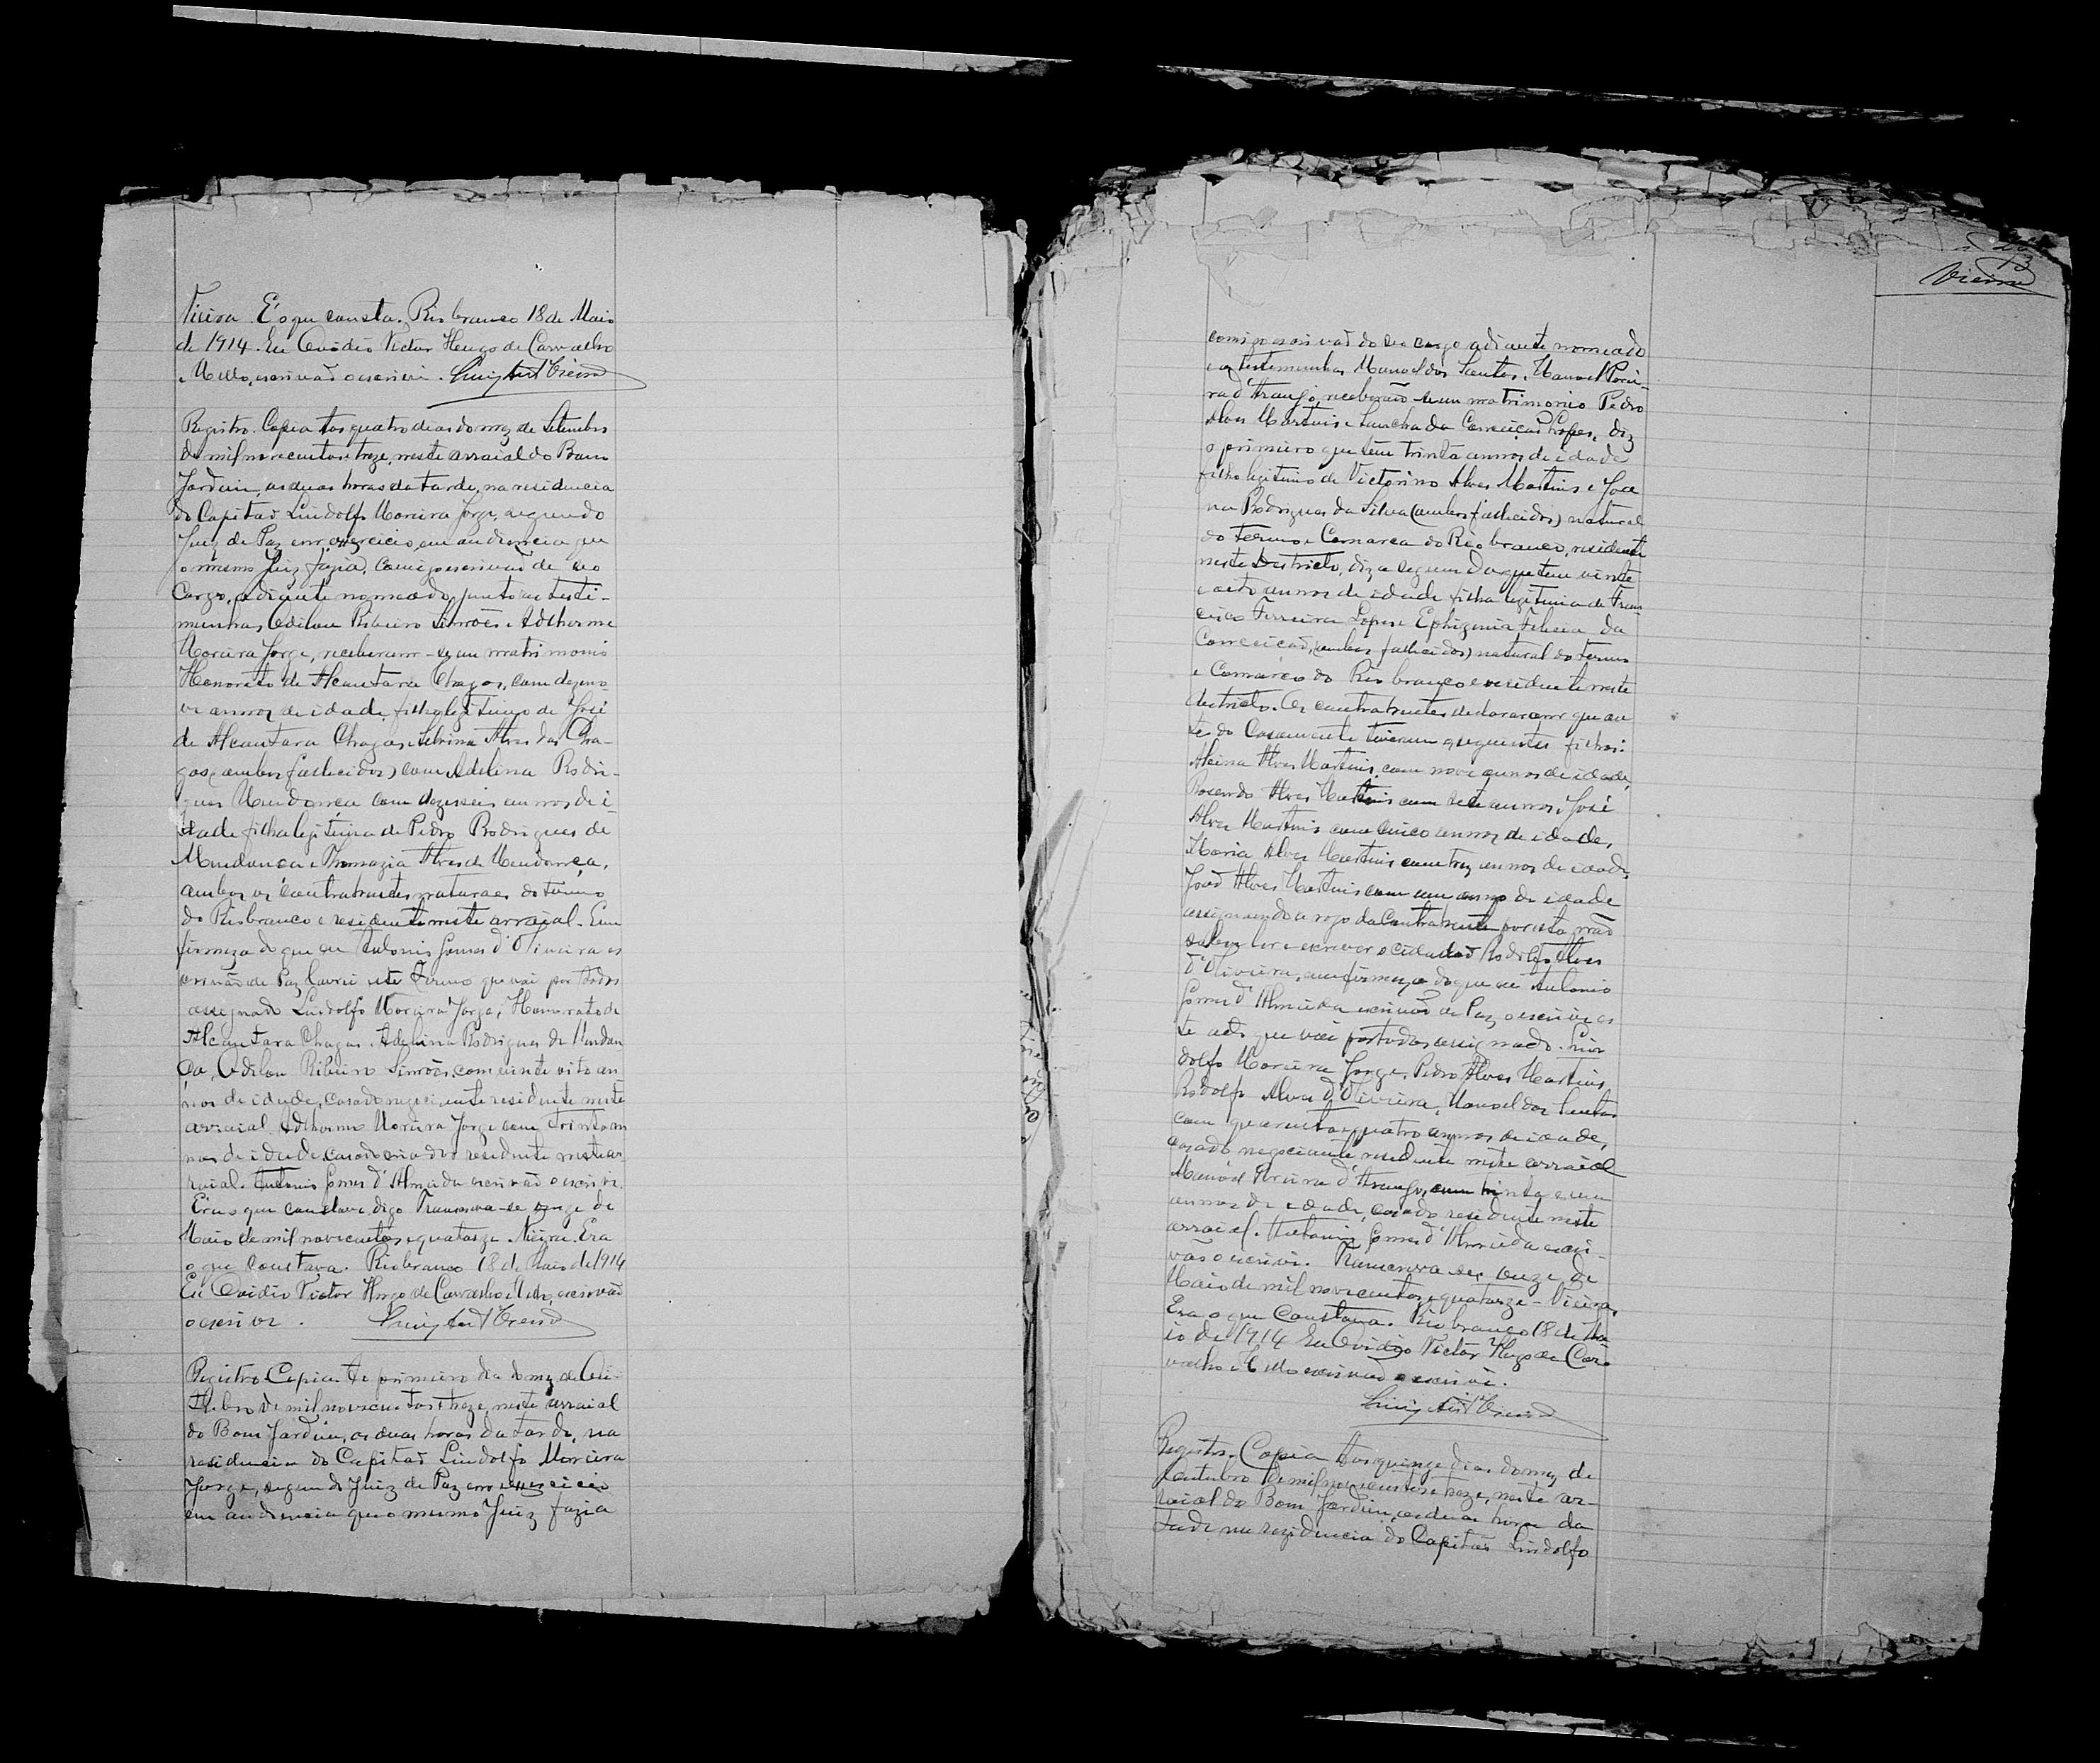 Vieira. É o que consta. Rio branco 18 de Maio
de 1914. Eu Ovidio Victor Hugo de Carvalho
e Mello, escrivão o escrivi.
Registro. Copia Aos quatro dias do mez de Setembro
de mil novecentos e treze, neste arraial do Bom
Jardim, as duas horas da tarde, na residencia
do Capitaõ Lindolfo Moreira Jorge, segundo
Juiz de Paz em exercicio, em audiencia que
o mesmo Juiz fazia, comigo escrivaõ de seo
Cargo, adiante nomeado, junto as testi-
munhas, Odilon Ribeiro Simões e Adthermo
Moreira Jorge, receberam-se em matrimonio
Honorato de Alcantara Chagas, com dezeno-
ve annos de idade, filho legitimo de José
de Alcantara Chagas e Silvina Alves das Cha-
gas (ambos fallecidos) com Adelina Rodri-
gues Mendonça com dezeseis annos de i-
dade filha legitima de Pedro Rodrigues de
Mendonca e Thomazia Alves de Mendonça,
ambos os contratantes naturaes do termo
do Rio branco e residente neste arraial. Em
firmeza do que eu Antonio Gomes d'Oliveira es
crivão de Paz lavrei este termo que vai por todos
assignado Lindolfo Moreira Jorge, Honorato de
Alcantara Chagas. Adelina Rodrigues de Mendon
ça, Odilon Ribeiro Simões, com vinte oito an
nos de idade, casado negociante residente neste
arraial, Adthermo Moreira Jorge com trinta an
nos de idade, casado criador residente neste ar
raial. Antonio Gomes d'Almeida escrivão o escrivi.
Era o que constava, digo Transcreva-se onze de
Maio de mil novecentos e quatorze. Vieira. Era
o que constava. Rio branco 18 de Maio de 1914
Eu Ovidio Victor Hugo de Carvalho e Mello, escrivaõ
o escrivi.
Registro. Copia. Ao primeiro dia do mez de Ou-
tubro de mil novecentos e treze, neste arraial
do Bom Jardim, as duas horas da tarde, na
residencia do Capitaõ Lindolfo Moreira
Jorge, segundo Juiz de Paz em exercicio
em audiencia que o mesmo Juiz fazia
13
Vieira
comigo escrivaõ do seo cargo adiante nomeado
e as testemunhas Manoel dos Santos, Manoel Perei-
ra d'Araujo, receberão-se em matrimonio Pedro
Alves Martins e Sancha da Conceiçaõ Lopes, diz
o primeiro que tem trinta annos de idade
filho legitimo de Victorino Alves Martins e Joa
na Rodrigues da Silva (ambos fallecidos) natural
do termo e Comarca do Rio branco, residente
neste Destricto, diz a segunda que tem vinte
e oito annos de idade filha legitima de Fran
cisco Ferreira Lopes e Ephigenia Felicia da
Conceicaõ, (ambos fallecidos) natural do termo
e Comarca do Rio branco e residente neste
destricto. Os contratantes declararam que an
tes do Casamento tiveram os seguintes filhos:
Alcina Alves Martins, com nove annos de idade,
Rosendo Alves Martins com sete annos, José
Alves Martins com cinco annos de idade,
Maria Alves Martins com trez annos de idade
Joaõ Alves Martins com um anno de idade
assignando a rogo da Contratante por esta não
saber ler e escrever o cidadaõ Rodolfo Alves
d'Oliveira, em firmeza do que eu Antonio
Gomes d'Almeida escrivão de Paz o escrivi es
te acto que vai por todos assignado. Lin
dolfo Moreira Jorge, Pedro Alves Martins,
Rodolfo Alves d'Oliveira, Manoel dos Santos
com quarenta e quatro annos de idade,
casado negociante residente neste arraial
Manoel Pereira d'Araujo, com trinta e um
annos de idade, casado residente neste
arraial. Antonio Gomes d'Almeida escri-
vão o escrivi. Transcreva-se onze de
Maio de mil novecentos e quatorze - Vieira,
Era o que Constava. Rio branco 18 de Ma
io de 1914 Eu Ovidio Victor Hugo de Car
valho e Mello escrivaõ o escrivi.
Registro. Copia Aos quinze dias do mez de
outubro de mil novecentos e treze, neste ar-
raial do Bom Jardim, as duas horas da
tarde na rezidencia do Capitaõ Lindolfo